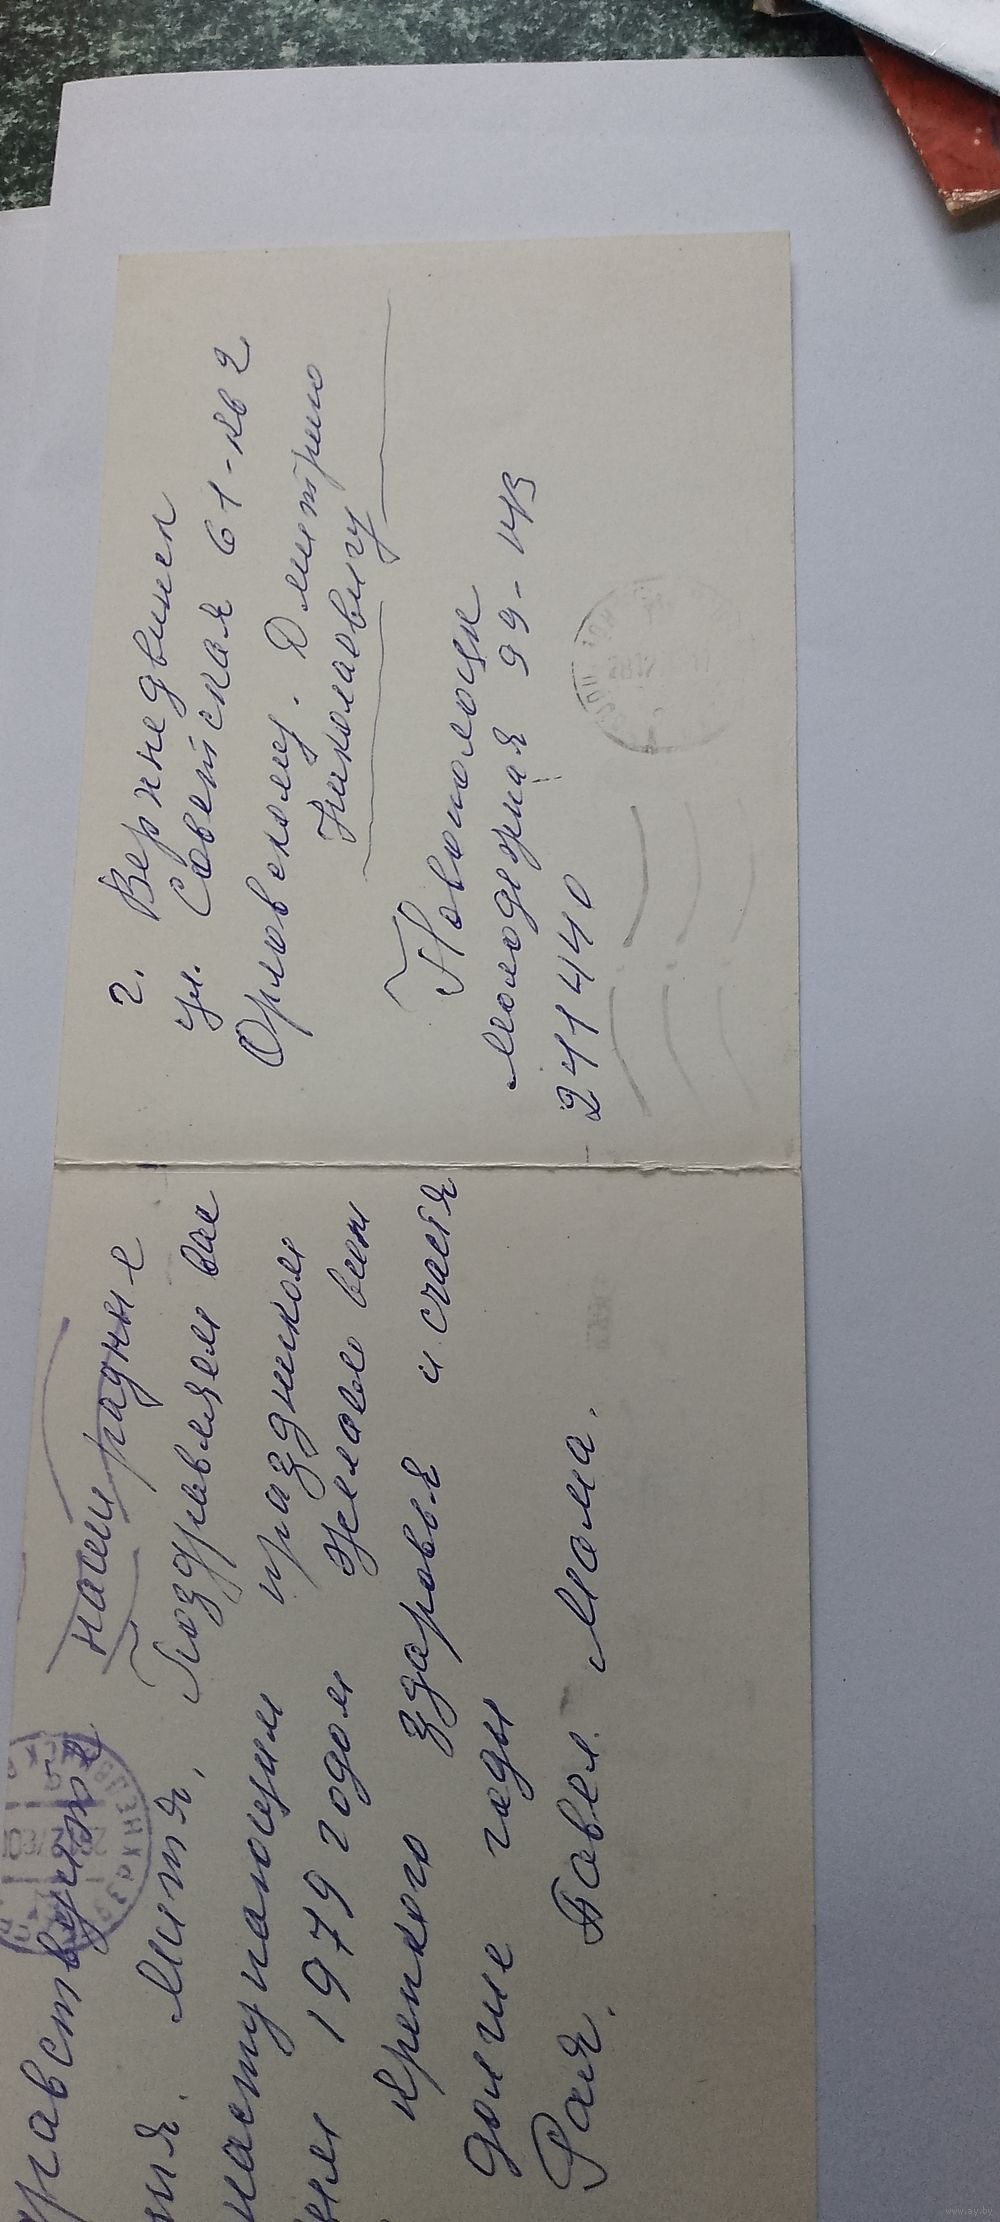 г. Верхнедвинск
ул. Советская 61-кв 2
Орловскому. Дмитрию
Николаевичу
Новополоцк
молодежная 99-
211440
равствуйте наши радные
ия. Митя. Поздравляем вас
наступающим праздником
1979 годом желаем вам
крепкого здаровья и счастя
долгие гады
Рая. Павел. Мама.
www.ay.by